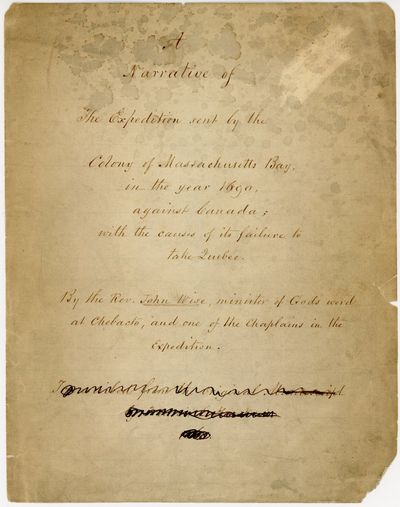 A
Narrative of
The Expedition sent by the
Colony of Massachusetts Bay,
in the year 1690,
against Canada;
with the causes of its failure to
take Quebec.
By the Rev. John Wise, minister of Gods word
at Chebacto, and one of the Chaplains in the
Expedition.